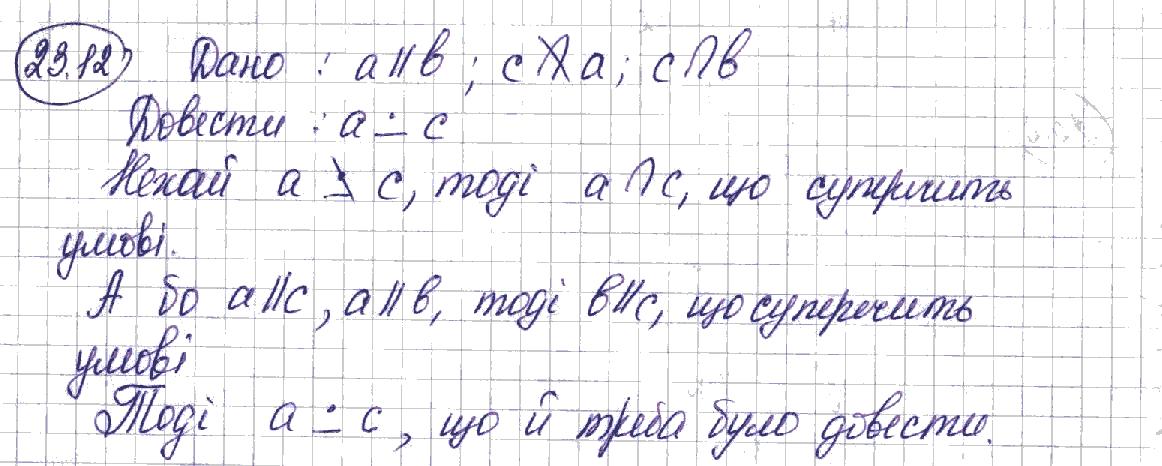 23.12 Дано : a∥b ; c∦a ; c∩b
Довести : a ∸ c
Нехай a ∸̸ c, тоді a∩c, що суперечить
умові.
А бо a∥c, a∥b, тоді b∥c, що суперечить
умові
Тоді a ∸ c, що й треба було довести.